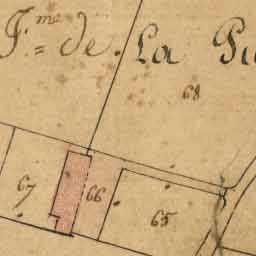 J.me de. La
68
67
66
65